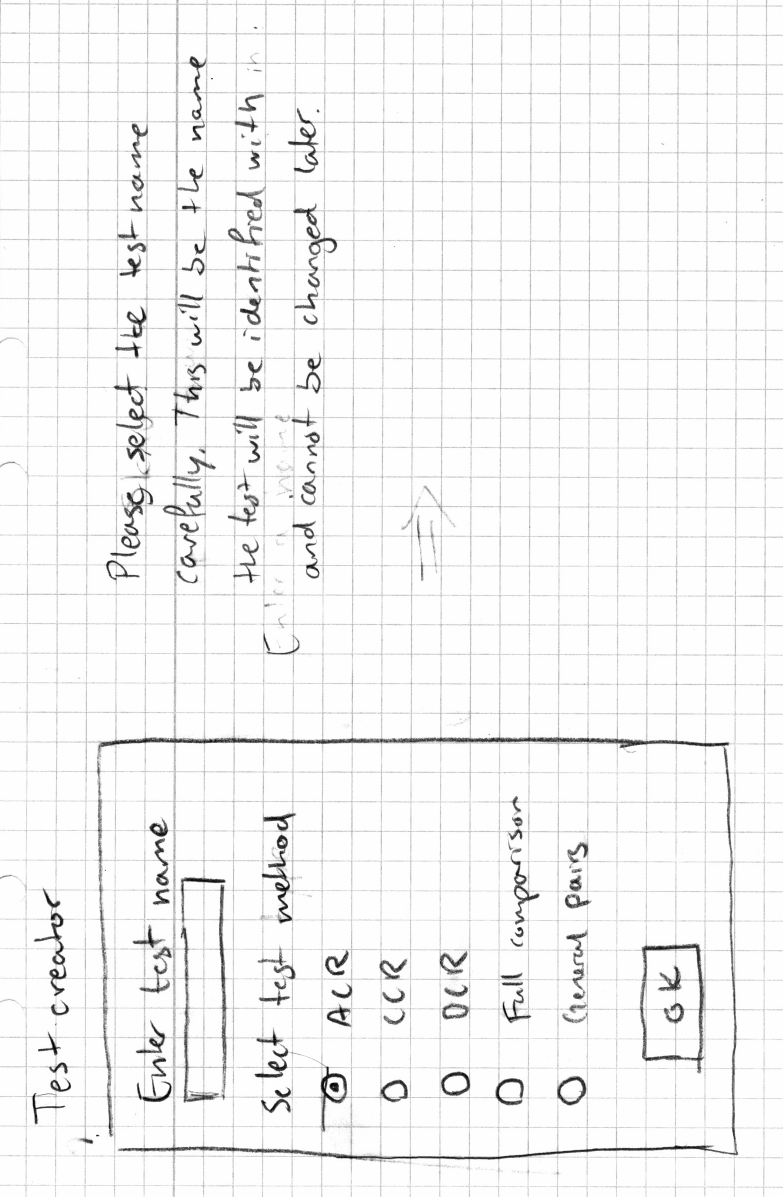 Test creator
Enter test name
Select test method
ACR
CCR
DCR
Full comparison
General pairs
OK
Please select the test name
carefully. This will be the name
the test will be identified with in
and cannot be changed later.